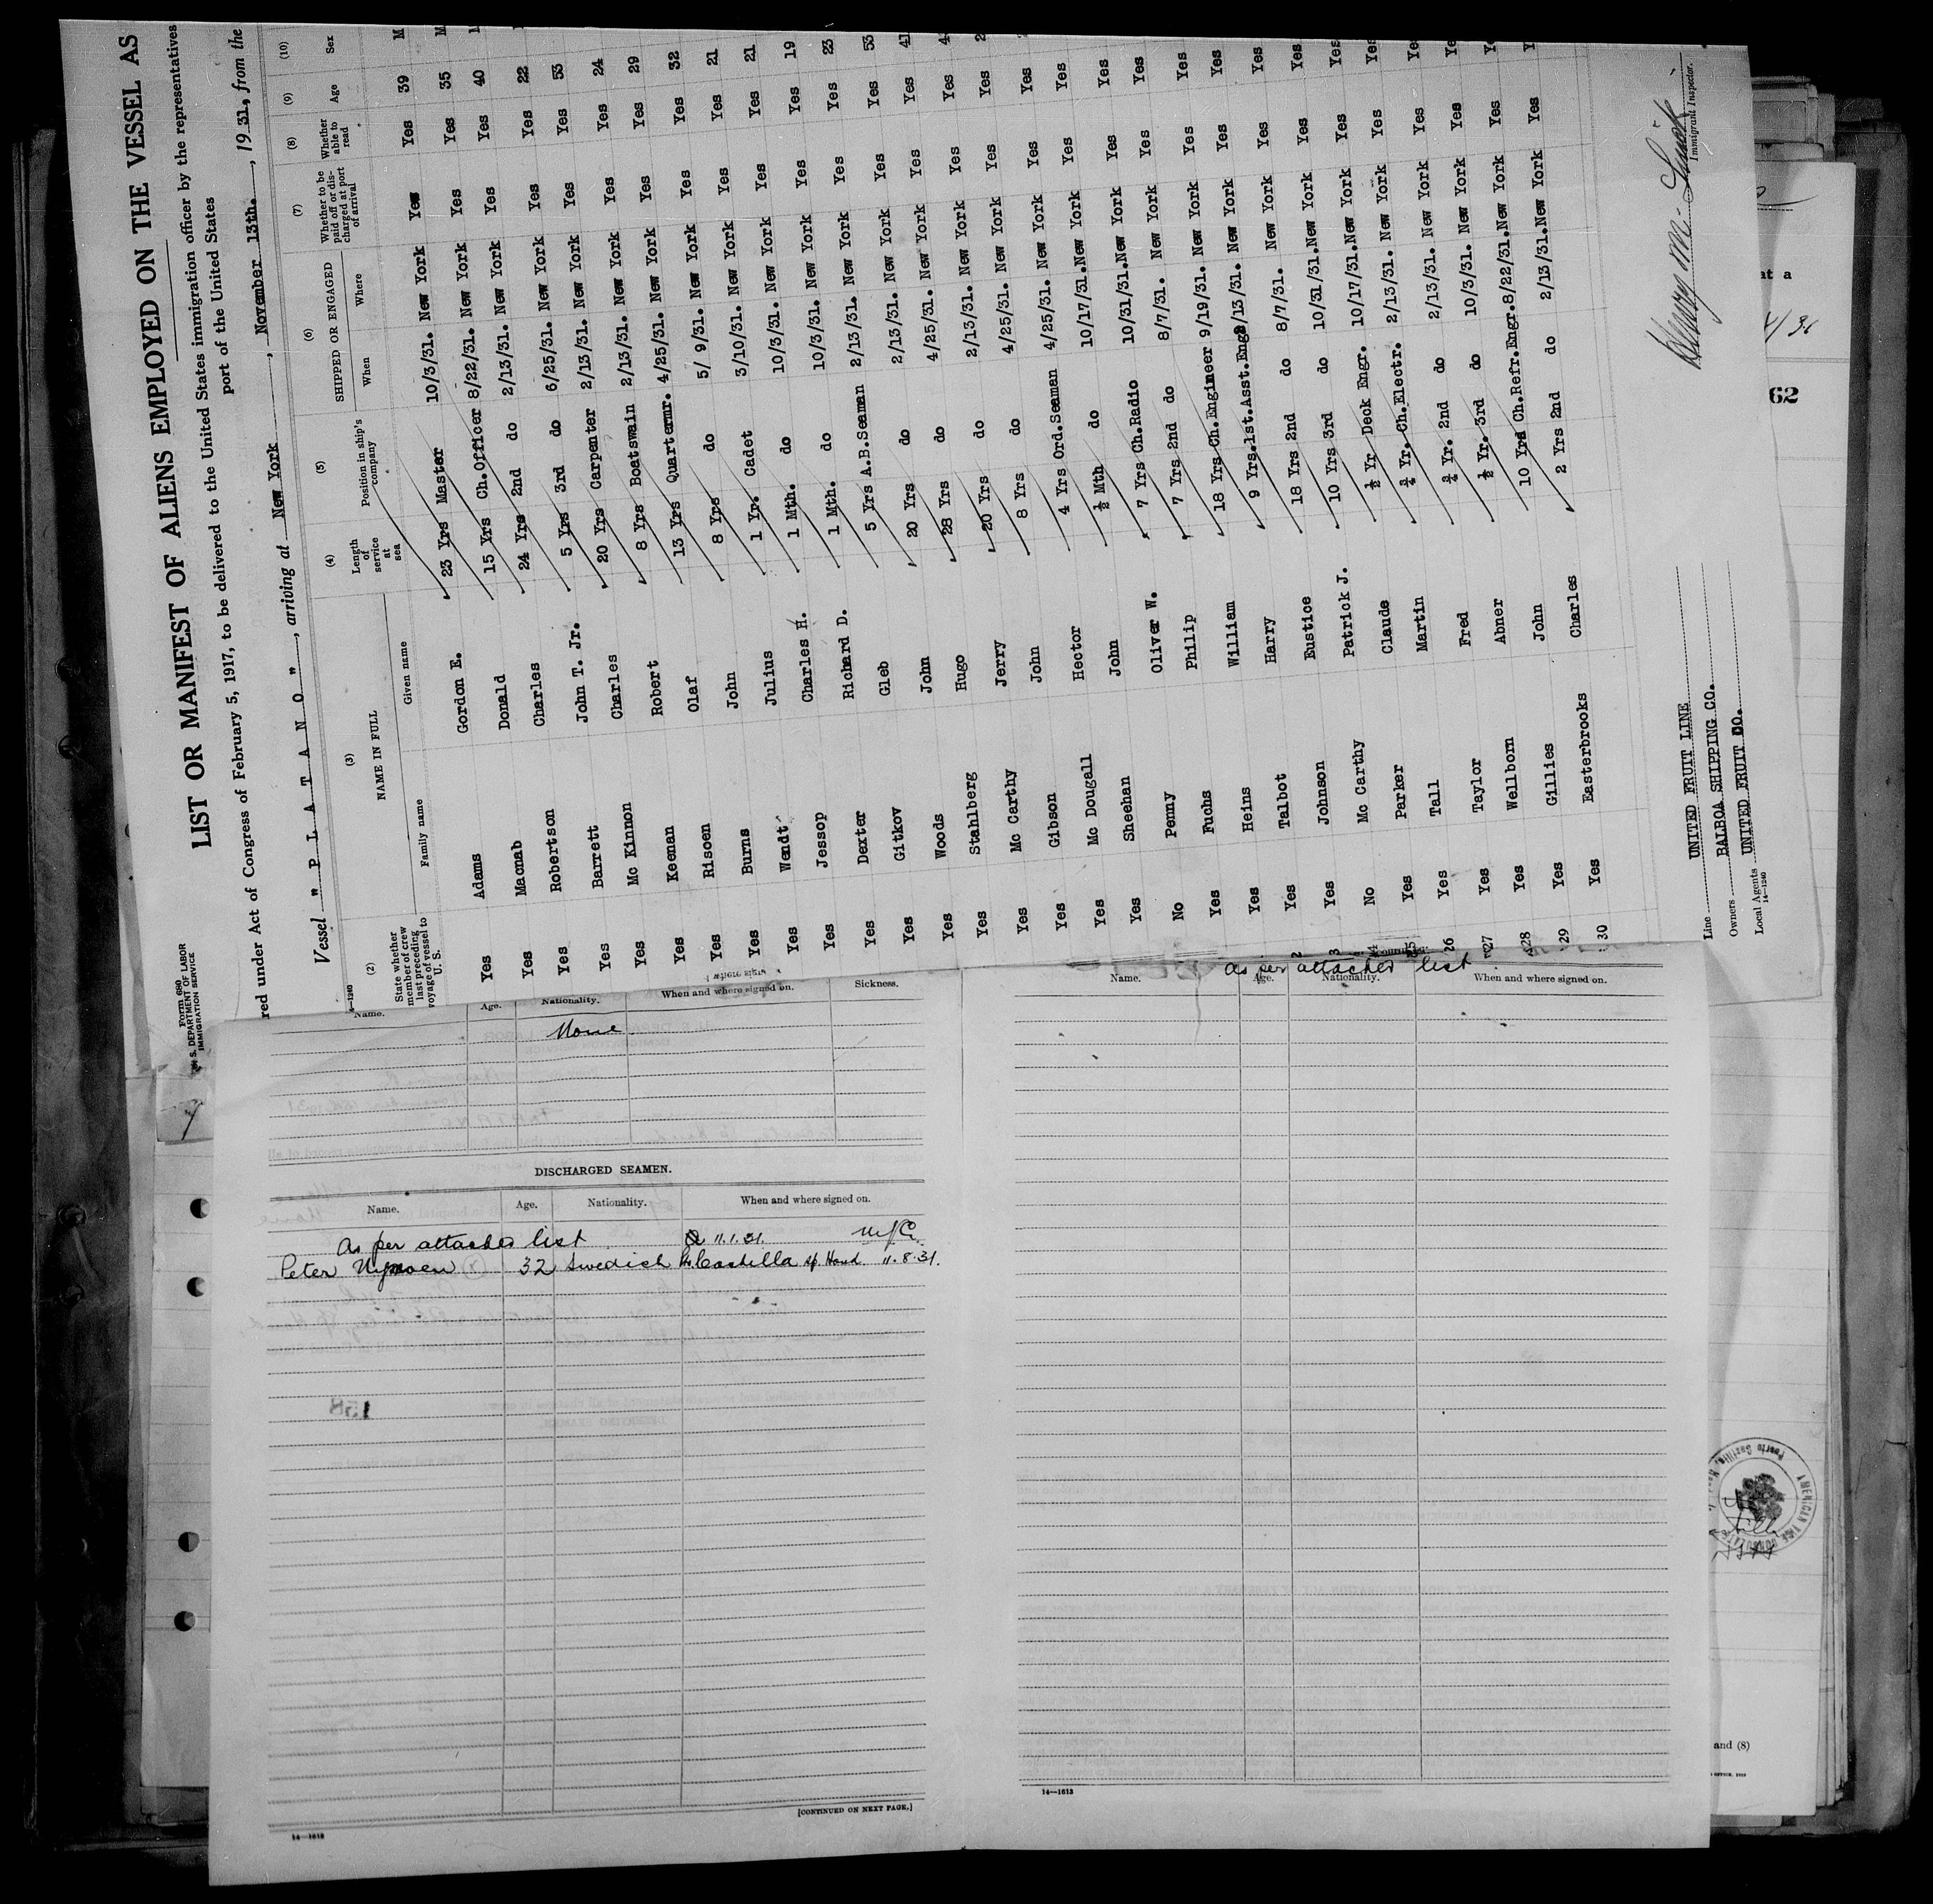 Form 680
U. S. DEPARTMENT OF LABOR
IMMIGRATION SERVICE
LIST OR MANIFEST OF ALIENS EMPLOYED ON THE VESSEL AS
red under Act of Congress of February 5, 1917, to be delivered to the United States immigration officer by the representatives
port of the United States
Vessel " P L A T A N O ", arriving at New York, November 13th., 19 31, from the
(2) (3) (4) (5) (6) (7) (8) (9) (10)
State whether member of crew last preceding voyage of vessel to U. S. NAME IN FULL Family name Given name Length of service at sea Position in ship's company SHIPPED OR ENGAGED When Where Whether to be paid off or discharged at port of arrival Whether able to read Age Sex
Yes Adams Gordon E. 23 Yrs Master 10/3/31. New York Yes Yes 39 M
Yes Macnab Donald 15 Yrs Ch.Officer 8/22/31. New York Yes Yes 35 M
Yes Robertson Charles 24 Yrs 2nd do 2/13/31. New York Yes Yes 40
Yes Barrett John T. Jr. 5 Yrs 3rd do 6/25/31. New York Yes Yes 22
Yes Mc Kinnon Charles 20 Yrs Carpenter 2/13/31. New York Yes Yes 53
Yes Keenan Robert 8 Yrs Boatswain 2/13/31. New York Yes Yes 24
Yes Risoen Olaf 13 Yrs Quartermr. 4/25/31. New York Yes Yes 29
Yes Burns John 8 Yrs do 5/ 9/31. New York Yes Yes 32
Yes Wendt Julius 1 Yr. Cadet 3/10/31. New York Yes Yes 21
Yes Jessop Charles H. 1 Mth. do 10/3/31. New York Yes Yes 21
Yes Dexter Richard D. 1 Mth. do 10/3/31. New York Yes Yes 19
Yes Gitkov Gleb 5 Yrs A.B.Seaman 2/13/31. New York Yes Yes 23
Yes Woods John 20 Yrs do 2/13/31. New York Yes Yes 53
Yes Stahlberg Hugo 28 Yrs do 4/25/31. New York Yes Yes 41
Yes Mc Carthy Jerry 20 Yrs do 2/13/31. New York Yes Yes
Yes Gibson John 8 Yrs do 4/25/31. New York Yes Yes
Yes Mc Dougall Hector 4 Yrs Ord.Seaman 4/25/31. New York Yes Yes
Yes Sheehan John ½ Mth do 10/17/31. New York Yes Yes
No Penny Oliver W. 7 Yrs Ch.Radio 10/31/31. New York Yes Yes
Yes Fuchs Philip 7 Yrs 2nd do 8/7/31. New York Yes Yes
Yes Heins William 18 Yrs Ch.Engineer 9/19/31. New York Yes Yes
Yes Talbot Harry 9 Yrs.1st.Asst.Eng 2/13/31. New York Yes Yes
Yes Johnson Eustice 18 Yrs 2nd do 8/7/31. New York Yes Yes
No Mc Carthy Patrick J. 10 Yrs 3rd do 10/31/31. New York Yes Yes
25 Yes Parker Claude ½ Yr Deck Engr. 10/17/31. New York Yes Yes
26 Yes Tall Martin ¾ Yr. Ch.Electr. 2/13/31. New York Yes Yes
27 Yes Taylor Fred ¾ Yr. 2nd do 2/13/31. New York Yes Yes
28 Yes Wellborn Abner ½ Yr. 3rd do 10/3/31. New York Yes Yes
29 Yes Gillies John 10 Yrs Ch.Refr.Engr. 8/22/31. New York Yes Yes
30 Yes Easterbrooks Charles 2 Yrs 2nd do 2/13/31. New York Yes Yes
Line UNITED FRUIT LINE
Owners BALBOA SHIPPING CO.
Local Agents UNITED FRUIT CO.
14-1240
Immigrant Inspector.
at a
62
Name. Age. Nationality. When and where signed on. Sickness.
None
DISCHARGED SEAMEN.
Name. Age. Nationality. When and where signed on.
As per attached list 11.1.31.
Peter 32 Swedish Castilla Sp. Hond. 11.8.31.
[CONTINUED ON NEXT PAGE.]
14—1613
as per attached list
Name. Age. Nationality. When and where signed on.
14—1613
AMERICAN VICE CONSULATE
and (8)